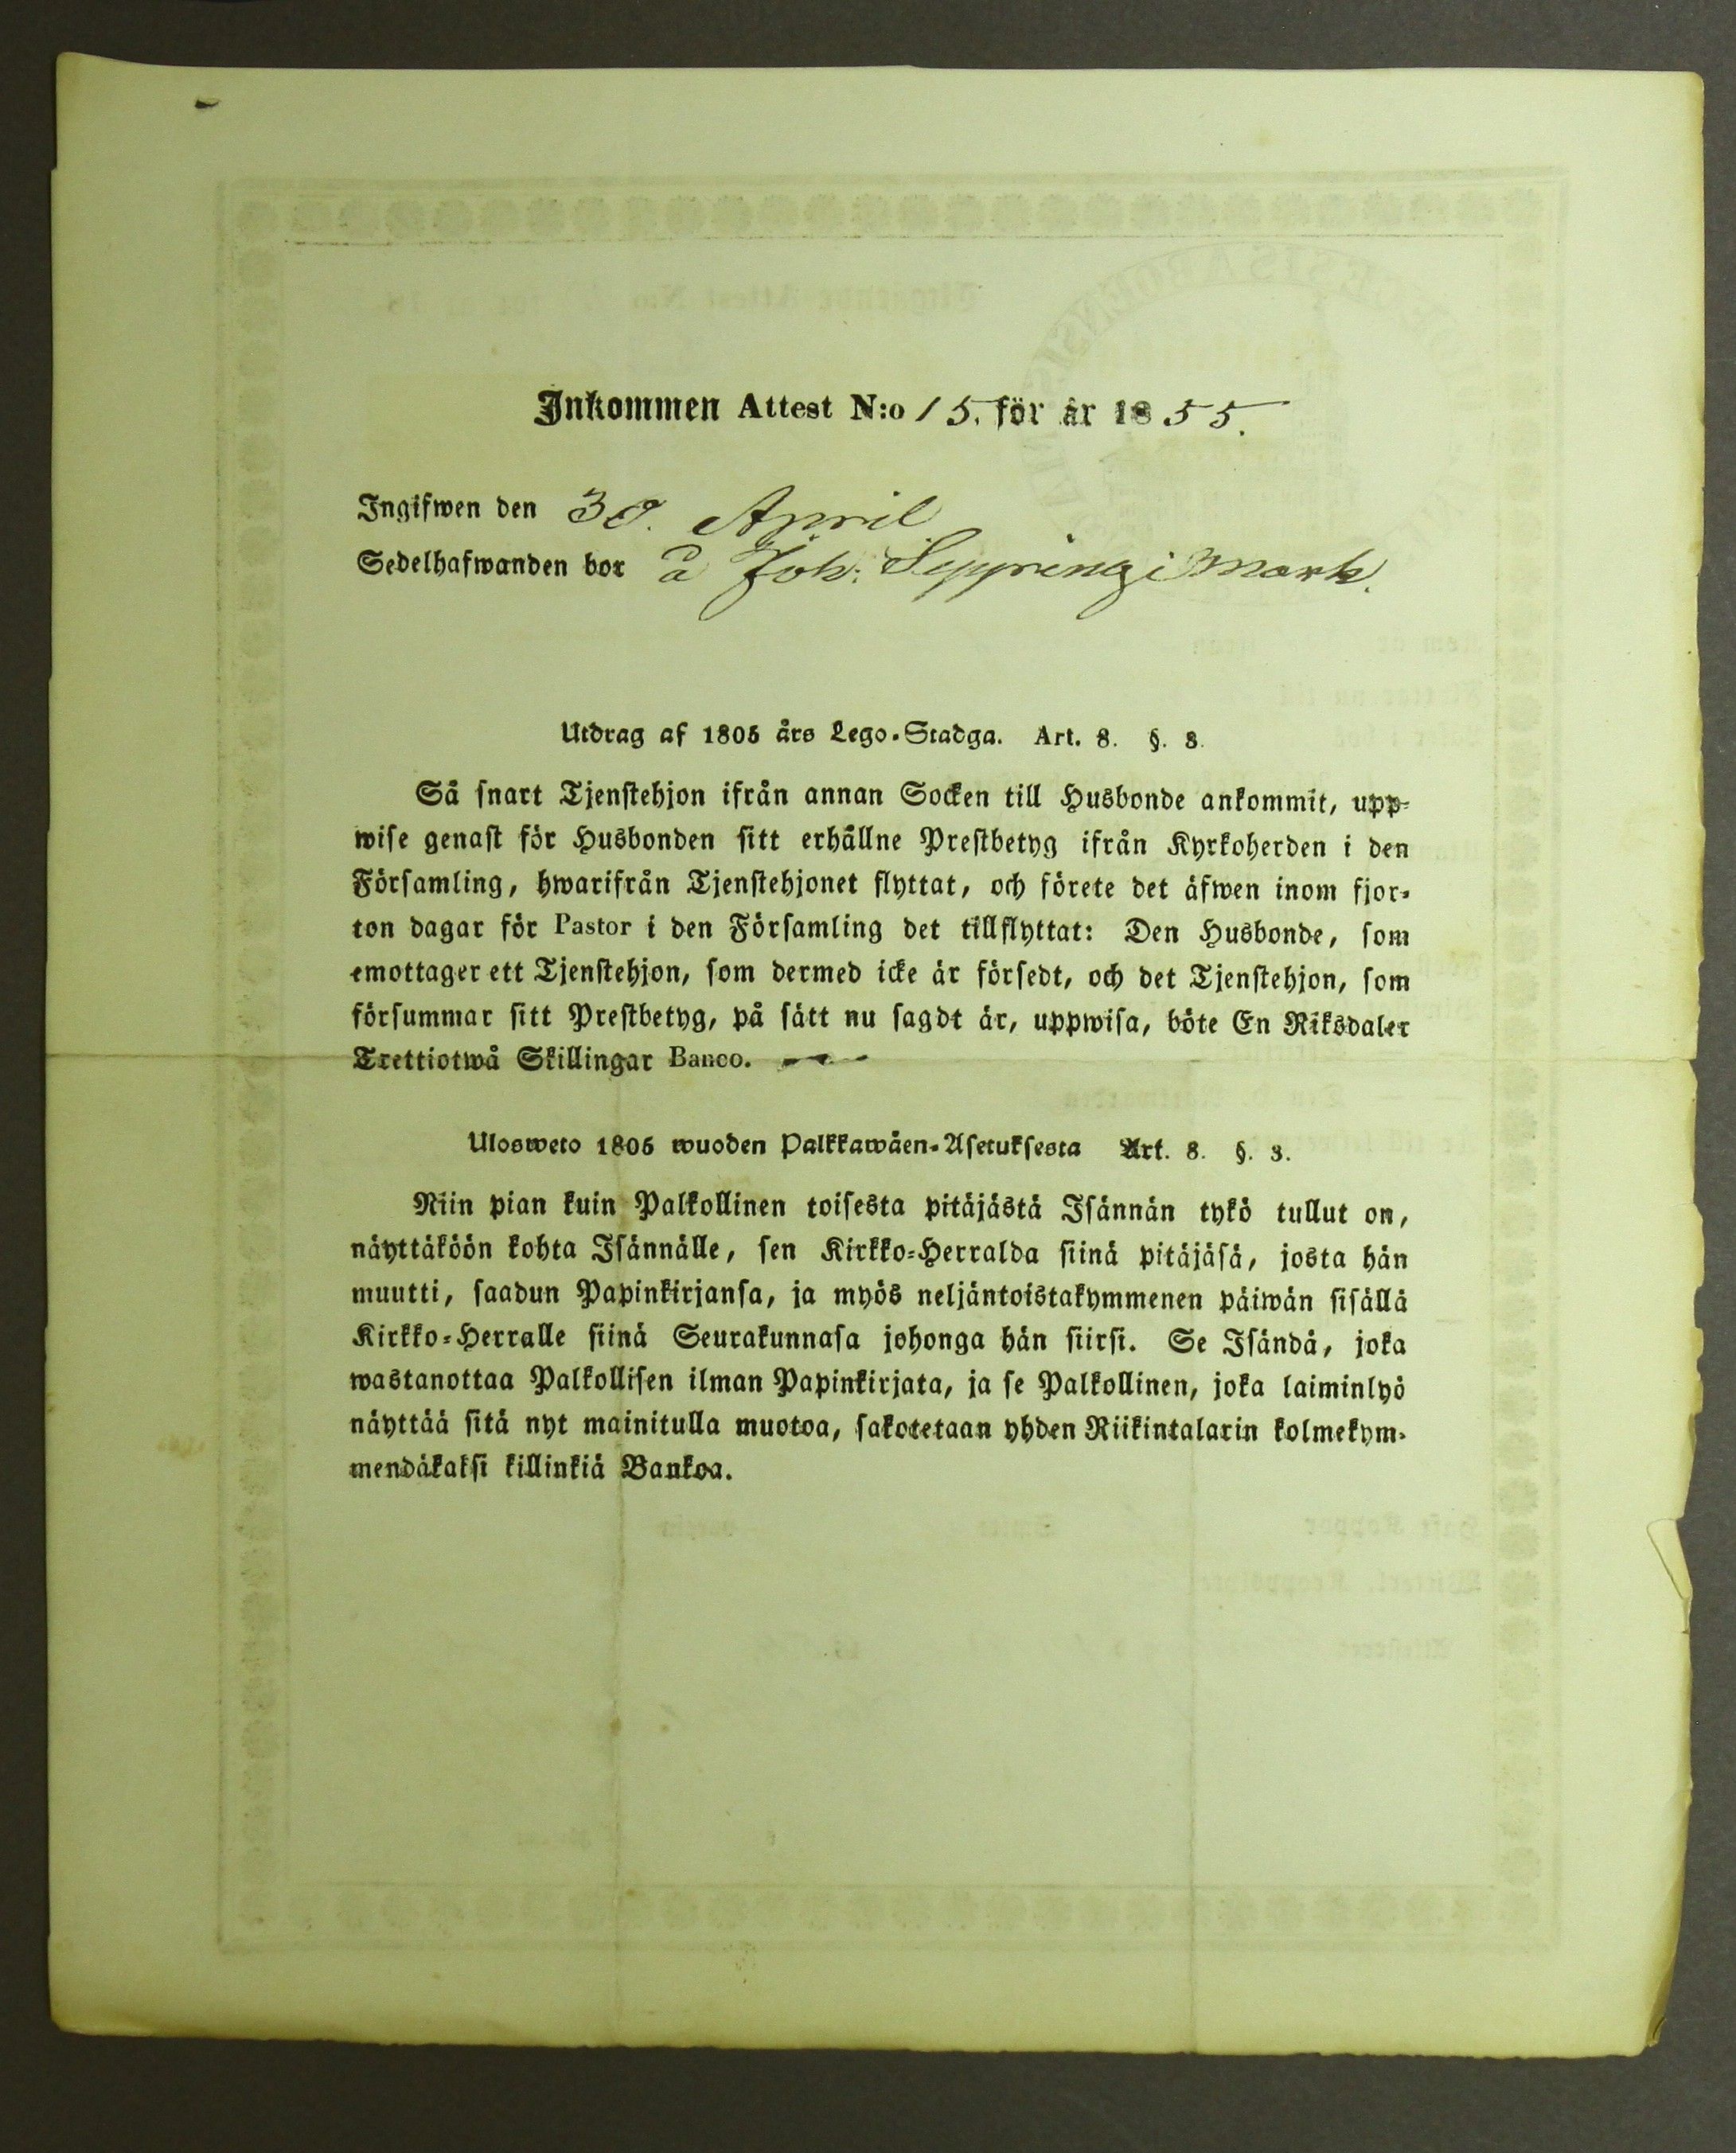 Inkommen Attest N:o 15. för år 1855.
Ingifwen den 30. April
Sedelhafwanden bor å Joh: Seppring i Mark.
Utdrag af 1805 års Lego-Stadga. Art. 8. §. 8.
Så snart Tjenstehjon ifrån annan Socken till Husbonde ankommit, upp-
wise genast för Husbonden sitt erhållne Prestbetyg ifrån Kyrkoherden i den
Församling, hwarifrån Tjenstehjonet flyttat, och förete det äfwen inom fjor-
ton dagar för Pastor i den Församling det tillflyttat: Den Husbonde, som
emottager ett Tjenstehjon, som dermed icke är försedt, och det Tjenstehjon, som
försummar sitt Prestbetyg, på sätt nu sagdt är, uppwisa, böte En Riksdaler
Trettiotwå Skillingar Banco.
Ulosweto 1805 wuoden Palkkawäen-Asetuksesta Art. 8. §. 3.
Niin pian kuin Palkollinen toisesta pitäjästä Isännän tykö tullut on,
näyttäköön kohta Isännälle, sen Kirkko-Herralda siinä pitäjäsä, josta hän
muutti, saadun Papinkirjansa, ja myös neljäntoistakymmenen päiwän sisällä
Kirkko-Herralle siinä Seurakunnasa johonga hän siirsi. Se Isändä, joka
wastanottaa Palkollisen ilman Papinkirjata, ja se Palkollinen, joka laiminlyö
näyttää sitä nyt mainitulla muotoa, sakotetaan yhden Riikintalarin kolmekym-
mendäkaksi killinkiä Bankoa.